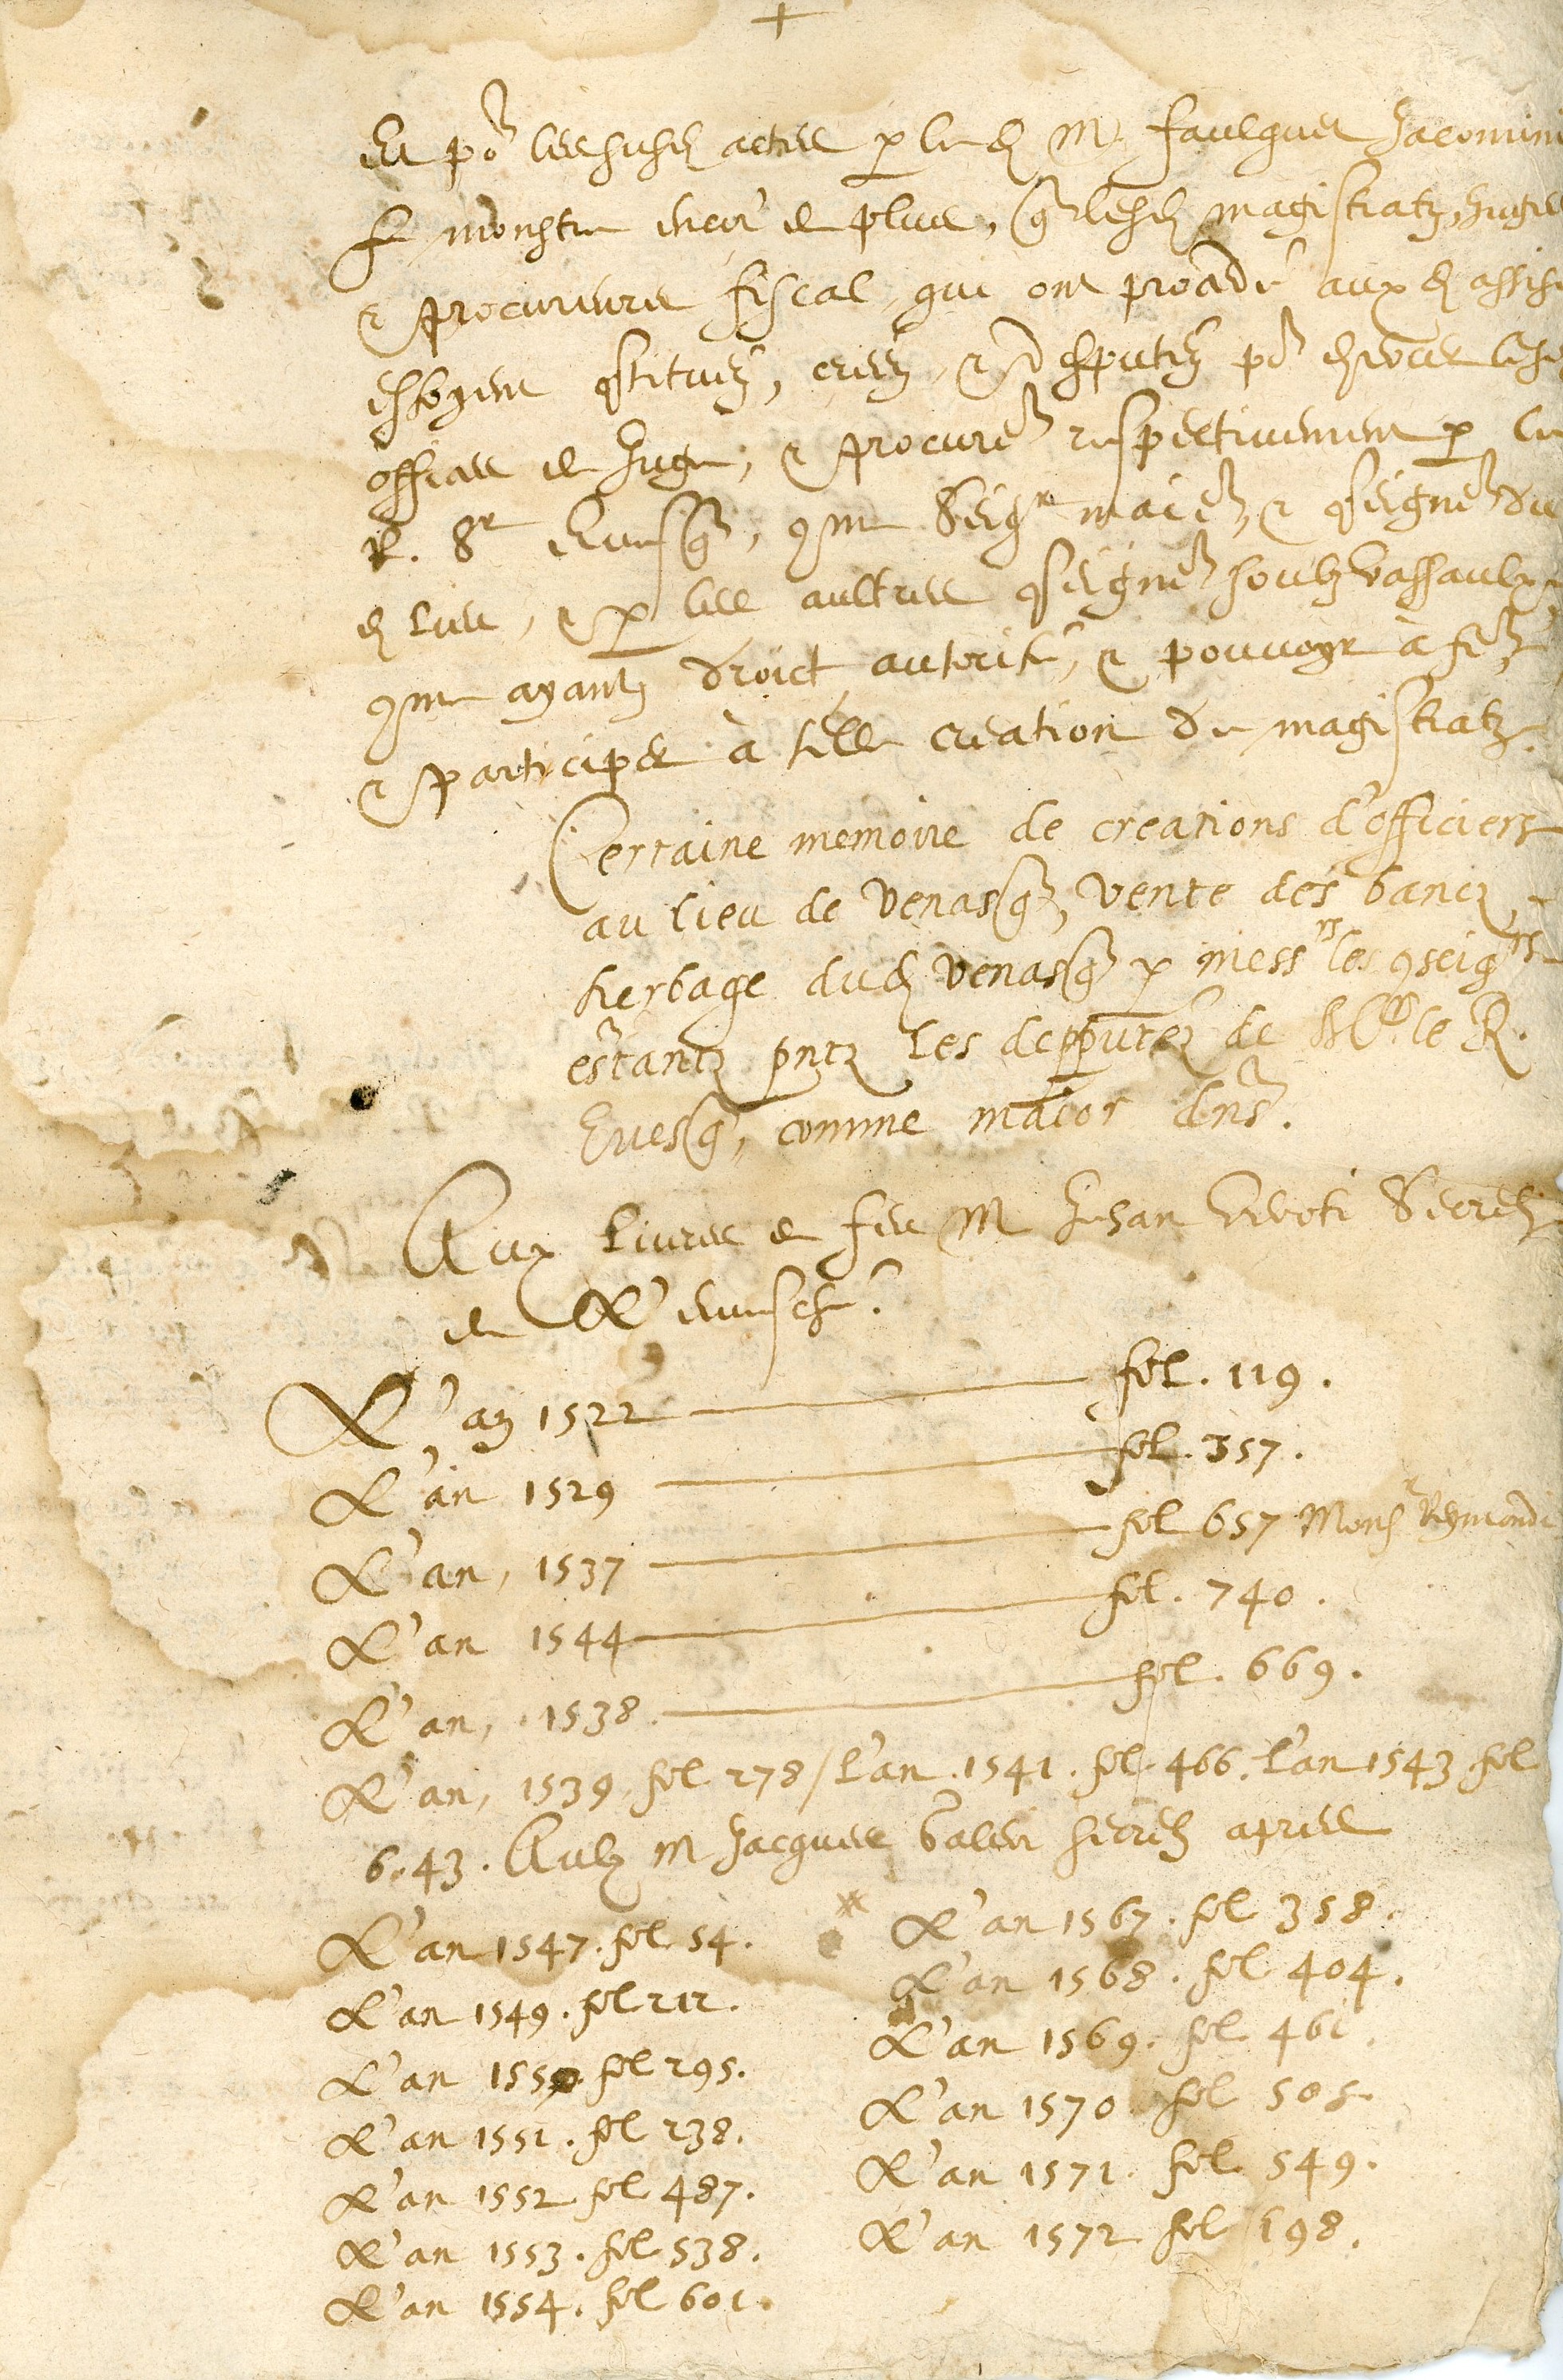 +
Et po^r les susd actes p le d M. faulquet Jacomini
se monstre encor' de plus, q̃ lesd magistratz, Juges
& procureurs fiscal, qui ont procedé aux d assises
estoyent 9stituez, creez, & depputez po^r exercer lesd
offices de Juge, & procure^r respectivement p le
R. S^r Evesq̃, 9me Seig^r maie^r, & 9seigne^r du
d lieu, & p les aultres 9seigne^rs soubz vassaulx,
9me ayantz droict, autorité, & pouvoyr à se^r
& participer à telle creation de magistratz.
Certaine memoire de creations d'officiers
au lieu de Venasq̃, vente des bancz,
herbage dud venasq̃ p mess^rs les 9seig^rs
estantz pntz les depputez de M^r le R.
Evesq̃, comme maior dns.
Aux livres de feu M Jehan Secret
de L'evesché.
L'an 1522 — fol. 119.
L'an 1529 — fol. 357.
L'an, 1537 — fol 657 Mons^r Reymondi
L'an 1544 — fol. 740.
L'an, 1538. — fol. 669.
L'an, 1539 fol 278 / l'an. 1541. fol. 466. l'an 1543 fol
6.43. Aulz M Jacques secret apres
L'an 1547. fol 54.
L'an 1549. fol 212.
L'an 1550. fol 295.
L'an 1551. fol 238.
L'an 1552 fol 487.
L'an 1553. fol 538.
L'an 1554. fol 601.
L'an 1567. fol 358.
L'an 1568. fol 404.
L'an 1569. fol 461.
L'an 1570 fol 505
L'an 1571. fol 549.
L'an 1572 fol 198.